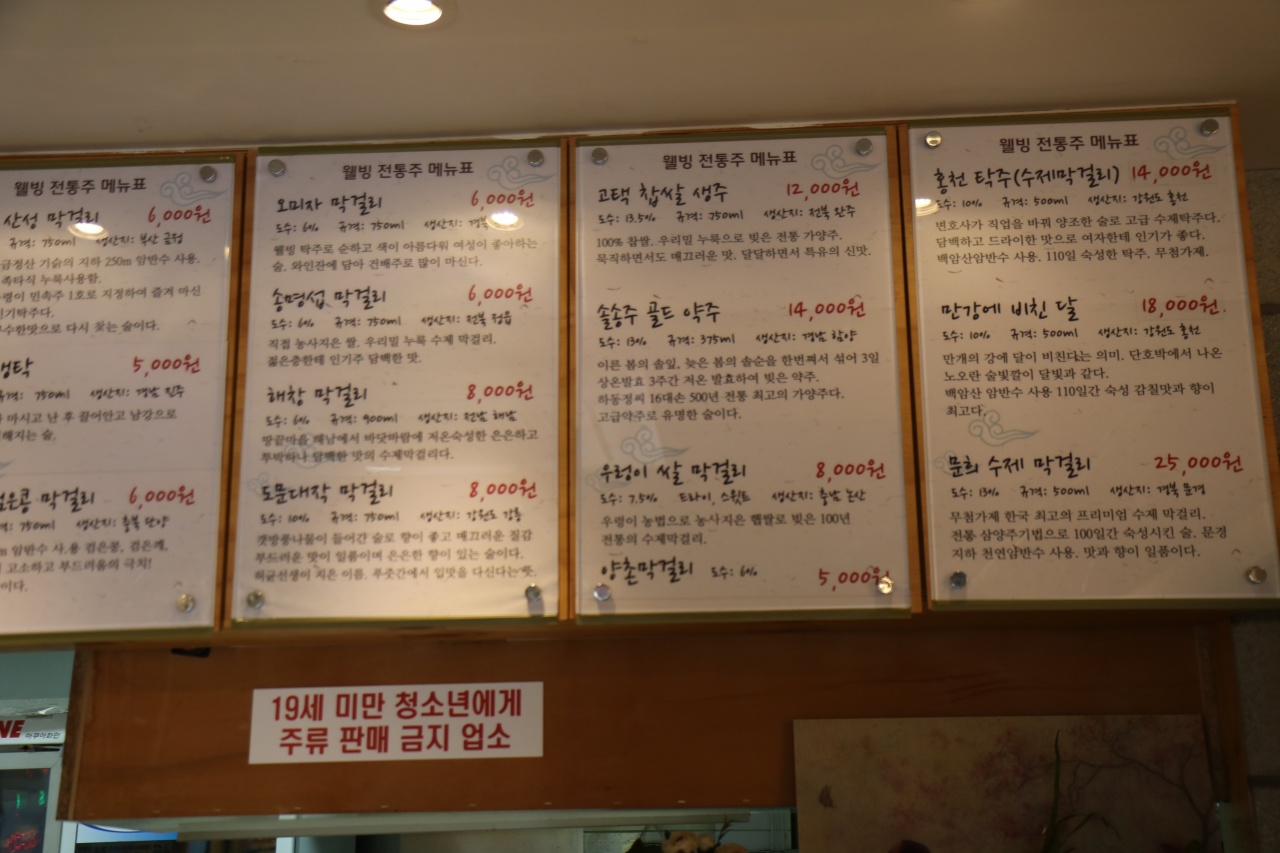 웰빙 전통주 메뉴표
산성 막걸리 6,000원
규격: 750ml 생산지: 부산 금정
금정산 기슭의 지하 250m 암반수 사용.
족타식 누룩사용함.
민속주 1호로 지정하여 즐겨 마신
인기탁주다.
다시 찾는 술이다.
생탁 5,000원
규격: 750ml 생산지: 경남 진주
마시고 난 후 끌어안고 남강으로
해지는 술.
검은콩 막걸리 6,000원
규격: 750ml 생산지: 충북 단양
암반수 사.용 검은콩, 검은깨.
고소하고 부드러움의 극치!
이다.
웰빙 전통주 메뉴표
오미자 막걸리 6,000원
도수: 6% 규격: 750ml 생산지: 경북
웰빙 탁주로 순하고 색이 아름다워 여성이 좋아하는
술. 와인잔에 담아 건배주로 많이 마신다.
송명섭 막걸리 6,000원
도수: 6% 규격: 750ml 생산지: 전북 정읍
직접 농사지은 쌀. 우리밀 누룩 수제 막걸리.
젊은층한테 인기주 담백한 맛.
해창 막걸리 8,000원
도수: 6% 규격: 900ml 생산지: 전남 해남
땅끝마을 해남에서 바닷바람에 저온숙성한 은은하고
투박하나 담백한 맛의 수제막걸리다.
도문대작 막걸리 8,000원
도수: 10% 규격: 750ml 생산지: 강원도 강릉
갯방풍나물이 들어간 술로 향이 좋고 매끄러운 질감
부드러운 맛이 일품이며 은은한 향이 있는 술이다.
허균선생이 지은 이름. 푸줏간에서 입맛을 다신다는 뜻.
웰빙 전통주 메뉴표
고택 찹쌀 생주 12,000원
도수: 13.5% 규격: 750ml 생산지: 전북 완주
100% 찹쌀. 우리밀 누룩으로 빚은 전통 가양주.
묵직하면서도 매끄러운 맛. 달달하면서 특유의 신맛.
솔송주 골드 약주 14,000원
도수: 13% 규격: 375ml 생산지: 경남 함양
이른 봄의 솔잎, 늦은 봄의 솔순을 한번쪄서 섞어 3일
상온발효 3주간 저온 발효하여 빚은 약주.
하동정씨 16대손 500년 전통 최고의 가양주다.
고급약주로 유명한 술이다.
우렁이 쌀 막걸리 8,000원
도수: 7.5% 드라이, 스윗트 생산지: 충남 논산
우렁이 농법으로 농사지은 햅쌀로 빚은 100년
전통의 수제막걸리.
양촌막걸리 도수: 6% 5,000원
웰빙 전통주 메뉴표
홍천 탁주(수제막걸리) 14,000원
도수: 10% 규격: 500ml 생산지: 강원도 홍천
변호사가 직업을 바꿔 양조한 술로 고급 수제탁주다.
담백하고 드라이한 맛으로 여자한테 인기가 좋다.
백암산암반수 사용. 110일 숙성한 탁주. 무첨가제.
만강에 비친 달 18,000원.
도수: 10% 규격: 500ml 생산지: 강원도 홍천
만개의 강에 달이 비친다는 의미. 단호박에서 나온
노오란 술빛깔이 달빛과 같다.
백암산 암반수 사용 110일간 숙성 감칠맛과 향이
최고다.
문희 수제 막걸리 25,000원
도수: 13% 규격: 500ml 생산지: 경북 문경
무첨가제 한국 최고의 프리미엄 수제 막걸리.
전통 삼양주기법으로 100일간 숙성시킨 술. 문경
지하 천연암반수 사용. 맛과 향이 일품이다.
19세 미만 청소년에게
주류 판매 금지 업소
NE 아쿠아화인